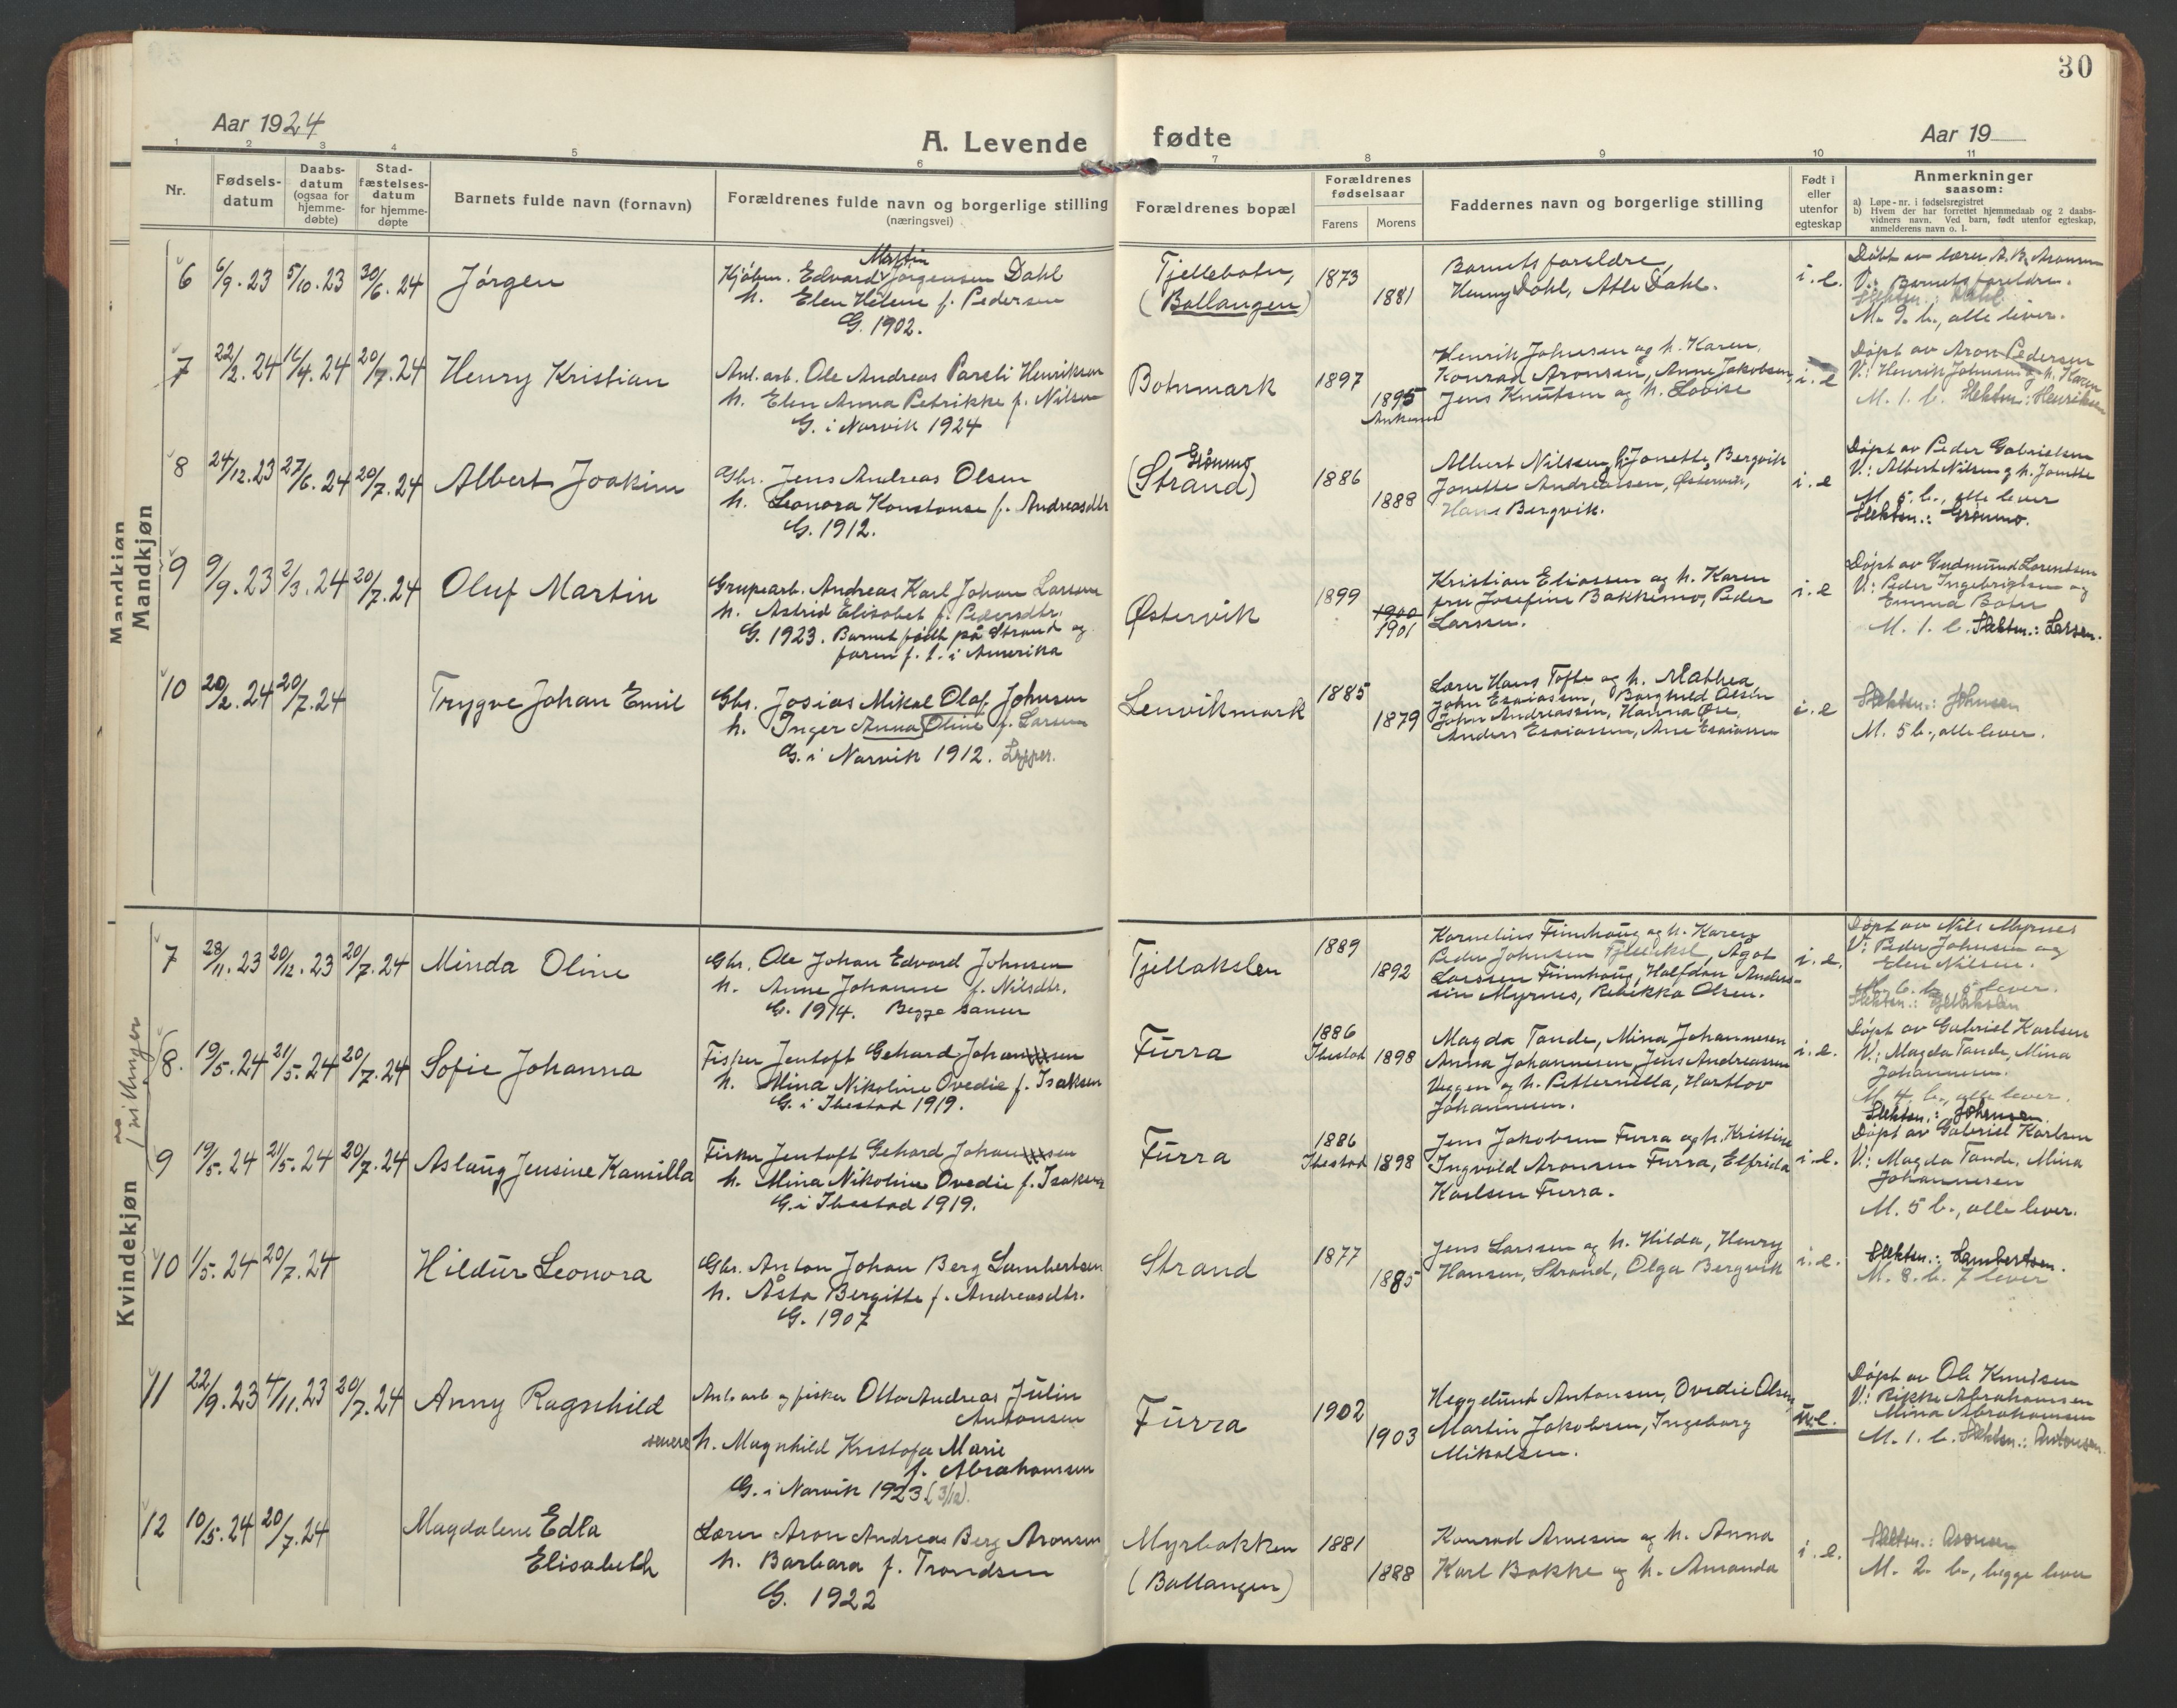 30
Aar 1924
A. Levende fødte
Aar 19
1 2 3 4 5 6 7 8 9 10 11
Nr.
Fødsels-
datum
Daabs-
datum
(ogsaa for
hjemme-
døbte)
Stad-
fæstelses-
datum
for hjemme-
døpte
Barnets fulde navn (fornavn)
Forældrenes fulde navn og borgerlige stilling
(næringsvei)
Forældrenes bopæl
Forældrenes
fødselsaar
Farens Morens
Faddernes navn og borgerlige stilling
Født i
eller
utenfor
egteskap
Anmerkninger
saasom:
a) Løpe-nr. i fødselsregistret
b) Hvem der har forrettet hjemmedaab og 2 daabs-
vidners navn. Ved barn, født utenfor egteskap,
anmelderens navn o. l.
Mandkjøn
Mandkjøn
6 6/9.23 5/10.23 30/6.24 Jørgen
Martin
Kjøbm. Edvard Jørgensen Dahl
h. Elen Helene f. Pedersen
G. 1902.
Tjellebotn,
(Ballangen)
1873
1881
Barnets foreldre,
Henny Dahl, Atle Dahl.
i. e.
Døbt av lærer A. B. Aronsen
V.: Barnets foreldre.
Slektsn.: Dahl
M. 9. b., alle lever.
7 22/2.24 16/4.24 20/7.24 Henry Kristian
Anl. arb. Ole Andreas Pareli Henriksen
h. Elen Anna Petrikke f. Nilsen
G. i Narvik 1924
Botnmark
1897
1895
Ankenes
Henrik Johnsen og h. Karen,
Konrad Aronsen, Anne Jakobsen,
Jens Knutsen og h. Lovise
i. e
Døpt av Aron Pedersen
V.: Henrik Johnsen og h. Karen
M. 1. b. Slektsn.: Henriksen
8 24/12.23 27/6.24 20/7.24 Albert Joakim
Gbr. Jens Andreas Olsen
h. Leonora Konstanse f. Andreasdtr
G. 1912.
Grønmo
(Strand)
1886
1888
Albert Nilsen, h. Jonette, Bergvik
Jonette Andreassen, Østervik,
Hans Bergvik.
i. e
Døpt av Peder Gabrielsen
V.: Albert Nilsen og h. Jonette
M. 5. b., alle lever
Slektsn.: Grønmo.
9 9/9.23 2/3.24 20/7.24 Oluf Martin
Grupearb. Andreas Karl Johan Larsen
h. Astrid Elisabet f. Pedersdtr.
G. 1923. Barnet født på Strand og
faren f. t. i Amerika
Østervik
1899
1900
1901
Kristian Eliassen og h. Karen
fru Josefine Bakkemo, Peder
Larsen.
i. e
Døpt av Gudmund Lorentsen
V.: Peder Ingebrigtsen og
Emma Botn
M. 1. b. Slektsn.: Larsen.
10 20/2.24 20/7.24 Trygve Johan Emil
Gbr. Josias Mikal Olaf Johnsen
h. Inger Anna Oline f. Larsen
G. i Narvik 1912. Lapper.
Lenvikmark
1885
1879
Lærer Hans Tofte og h. Mathea
John Esaiassen, Borghild Olsen
John Andreassen, Hanna Øie,
Anders Esaiassen, Ane Esaiassen
i. e
Slektsn.: Johnsen
M. 5 b., alle lever.
Kvindekjøn
tvillinger
7 28/11.23 20/12.23 20/7.24 Minda Oline
Gbr. Ole Johan Edvard Johnsen
h. Anne Johanne f. Nilsdtr.
G. 1914. Begge samer
Tjellakslen
1889
1892
Kornelius Finnhaug og h. Karen
Peder Johnsen Tjellaksl, Ågot
Larssen Finnhaug, Halfdan Anders-
sen Myrnes, Rebekka Olsen.
i. e.
Døpt av Nils Myrnes
V: Peder Johnsen og
Elen Nilsen.
M. 6. b. 5 lever.
Slektsn.: Tjellakslen
8. 19/5.24 21/5.24 20/7.24 Sofie Johanna
Fisker Jentoft Gehard Johansen
h. Mina Nikoline Ovedie f. Isaksen
G. i Ibestad 1919.
Furra
1886
Ibestad
1898
Magda Tande, Mina Johannesen
Anna Johannesen, Jens Andreassen
Veggen og h. Petternella, Hartlov
Johannesen.
i. e.
Døpt av Gabriel Karlsen
V.: Magda Tande, Mina
Johannesen.
M. 4. b., alle lever.
Slektsn.: Johansen.
9 19/5.24 21/5.24 20/7.24 Aslaug Jensine Kamilla
Fisker Jentoft Gehard Johansen
h. Mina Nikoline Ovedie f. Isaksen
G. i Ibestad 1919.
Furra
1886
Ibestad
1898
Jens Jakobsen Furra og h. Kristine
Ingvald Aronsen Furra, Elfrida
Karlsen Furra.
i. e.
Døpt av Gabriel Karlsen
V.: Magda Tande, Mina
Johannesen
M. 5 b., alle lever.
10 1/5.24 20/7.24 Hildur Leonora
Gbr. Anton Johan Berg Lambertsen
h. Åsta Bergitte f. Andreasdtr.
G. 1907
Strand
1877
1885
Jens Larssen og h. Hilda, Henry
Hansen, Strand, Olga Bergvik
i. e.
Slektsn.: Lambertsen.
M. 8. b. 7 lever
11 22/9.23 4/11.23 20/7.24 Anny Ragnhild
Anl. arb og fisker Otto Andreas Julin
Antonsen
senere h. Magnhild Kristofa Marie
f. Abrahamsen
G. i Narvik 1923 (3/12).
Furra
1902
1903
Heggelund Antonsen, Ovedie Olsen,
Martin Jakobsen, Ingeborg
Mikalsen.
u. e.
Døpt av Ole Knutsen
V.: Rikke Abrahamsen
Mina Abrahamsen
M. 1. b. Slektsn.: Antonsen.
12 10/5.24 20/7.24 Magdalene Edla
Elisabeth
Lærer Aron Andreas Berg Aronsen
h. Barbara f. Trondsen
G. 1922
Myrbakken
(Ballangen)
1881
1888
Konrad Arnesen og h. Anna
Karl Bakke og h. Amanda
i. e.
Slektsn.: Aronsen
M. 2. b., begge lever